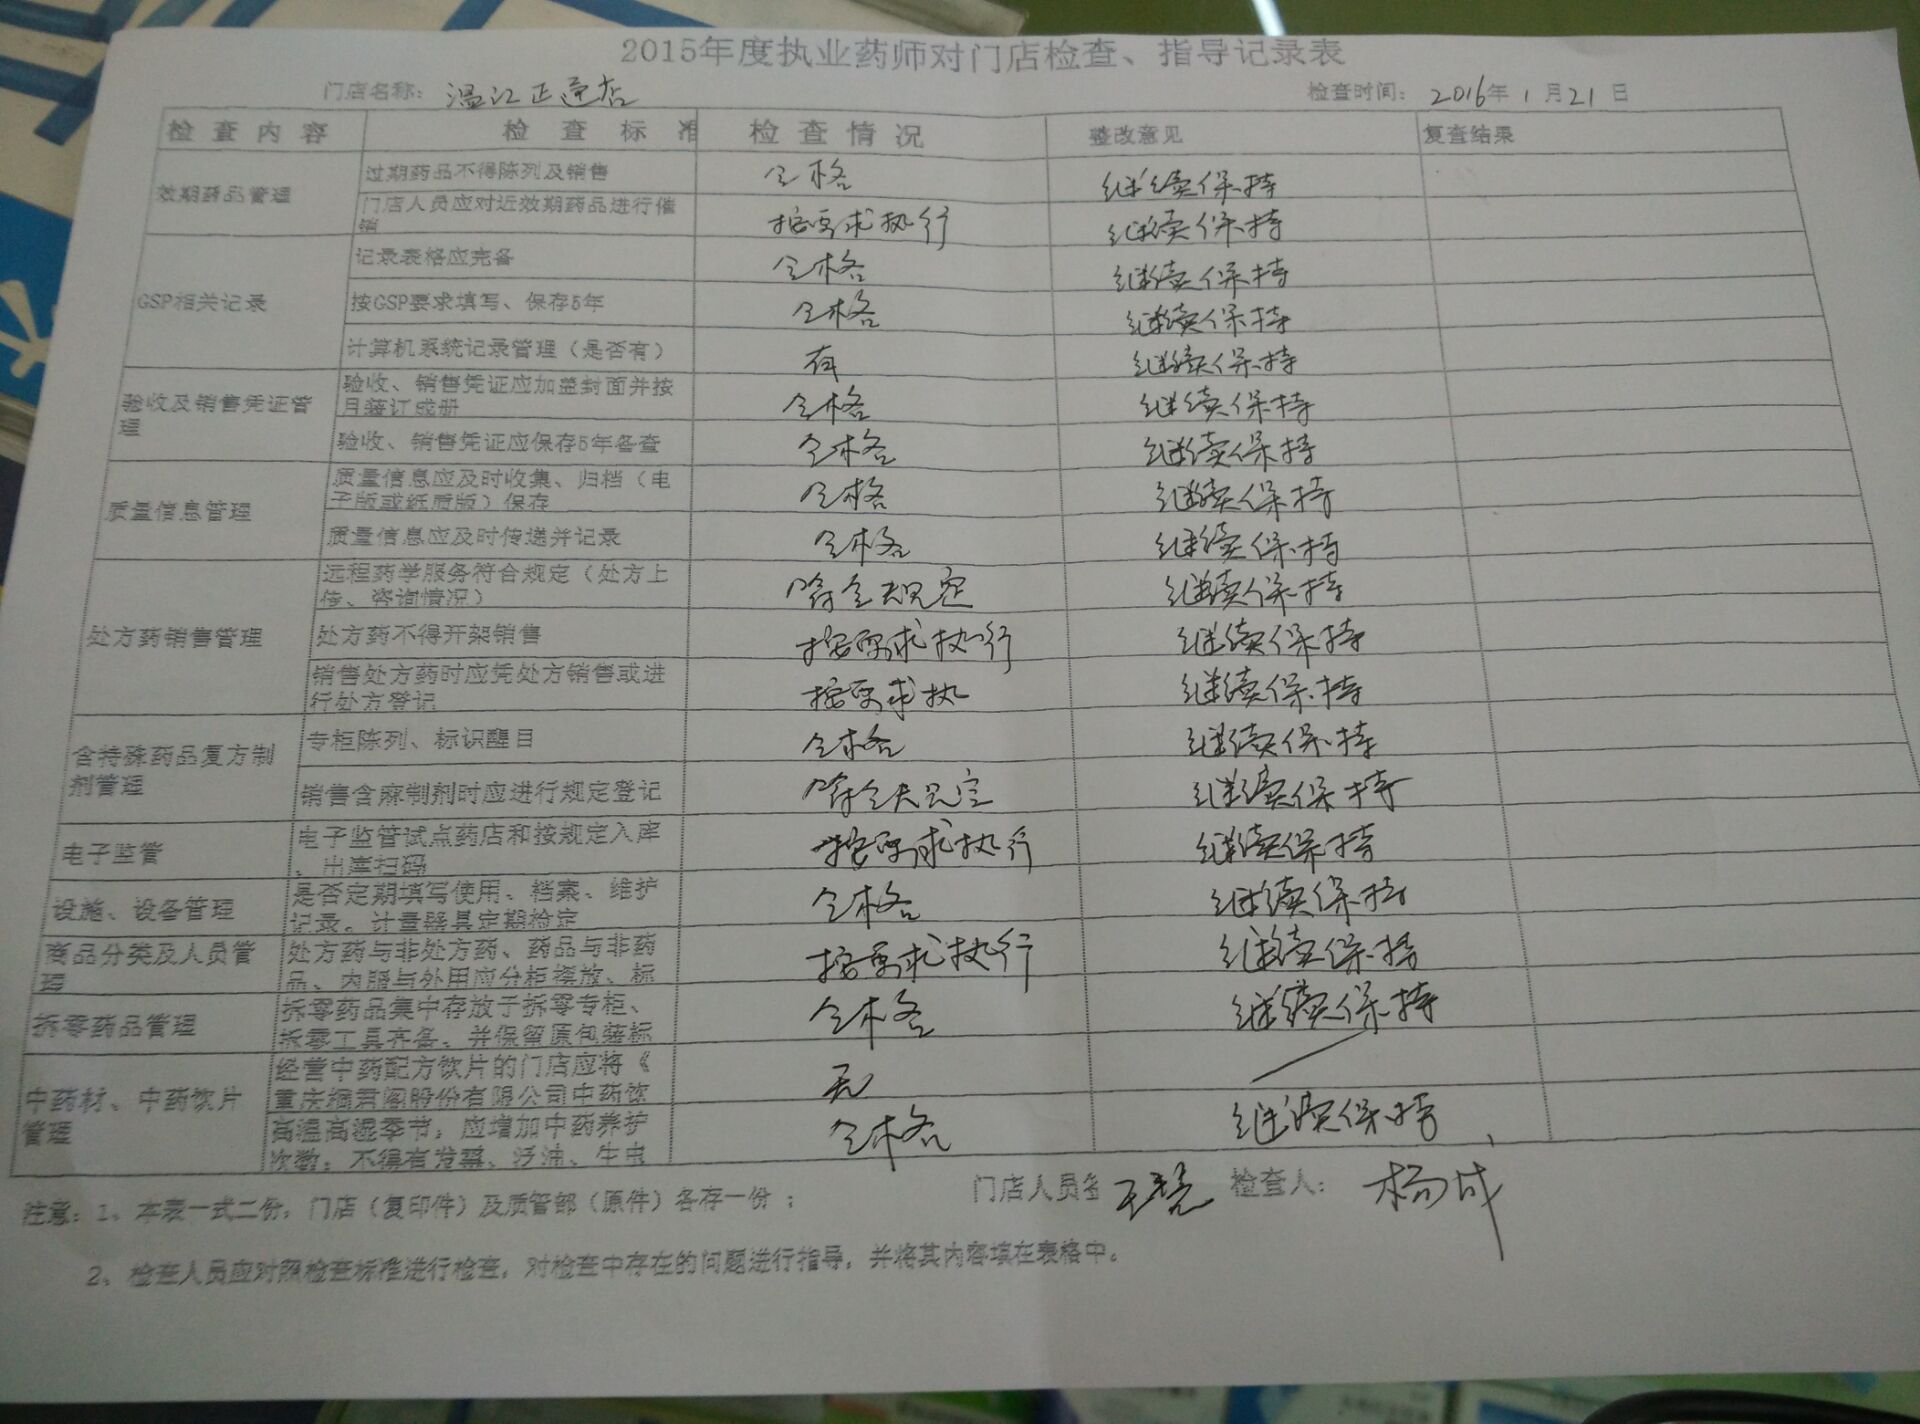 2015年度执业药师对门店检查、指导记录表
门店名称： 温江正通店 检查时间： 2016年 1 月 21 日
检查内容 检查标准 检查情况 整改意见 复查结果
效期药品管理 过期药品不得陈列及销售 合格 继续保持
门店人员应对近效期药品进行催销 按要求执行 继续保持
GSP相关记录 记录表格应完备 合格 继续保持
按GSP要求填写、保存5年 合格 继续保持
计算机系统记录管理（是否有） 有 继续保持
验收及销售凭证管理 验收、销售凭证应加盖封面并按
月装订成册 合格 继续保持
验收、销售凭证应保存5年备查 合格 继续保持
质量信息管理 质量信息应及时收集、归档（电
子版或纸质版）保存 合格 继续保持
质量信息应及时传递并记录 合格 继续保持
处方药销售管理 远程药学服务符合规定（处方上
传、咨询情况） 符合规定 继续保持
处方药不得开架销售 按要求执行 继续保持
销售处方药时应凭处方销售或进
行处方登记 按要求执 继续保持
含特殊药品复方制剂管理 专柜陈列、标识醒目 合格 继续保持
销售含麻制剂时应进行规定登记 符合规定 继续保持
电子监管 电子监管试点药店和按规定入库
、出库扫码 按要求执行 继续保持
设施、设备管理 是否定期填写使用、档案、维护
记录。计量器具定期检定 合格 继续保持
商品分类及人员管理 处方药与非处方药、药品与非药
品、内服与外用应分柜摆放、标 按要求执行 继续保持
拆零药品管理 拆零药品集中存放于拆零专柜、
拆零工具齐备、并保留原包装标 合格 继续保持
中药材、中药饮片管理 经营中药配方饮片的门店应将《
重庆桐君阁股份有限公司中药饮 无
高温高湿季节，应增加中药养护
次数，不得有发霉、泛油、生虫 合格 继续保持
门店人员签 检查人： 杨成
注意：1、本表一式二份，门店（复印件）及质管部（原件）各存一份；
2、检查人员应对照检查标准进行检查，对检查中存在的问题进行指导，并将其内容填在表格中。